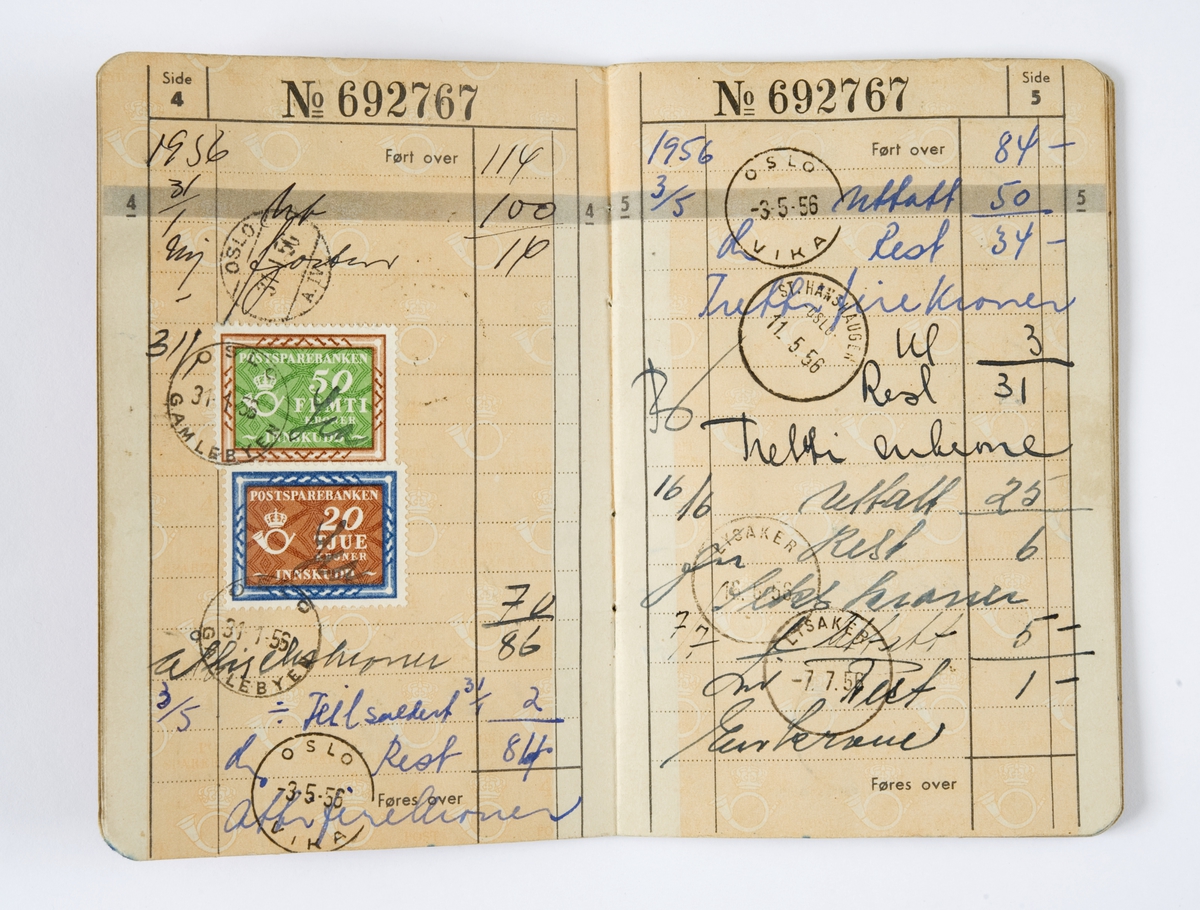 Side
4
№ 692767
1956 Ført over 114
31/1 100
4 4
OSLO
A. IV
fjorten 14
31/1
POSTSPAREBANKEN
50
FEMTI
KRONER
INNSKUDD
OSLO
31-1-56
GAMLEBYEN
POSTSPAREBANKEN
20
TJUE
KRONER
INNSKUDD
70
31-1-56
GAMLEBYEN
86
3/5 ÷ Feil saldert 31/1 2
Rest 84
OSLO
-3-5-56
VIKA
Føres over
Åttifirekroner
Side
5
№ 692767
1956 Ført over 84 -
5 5
3/5 Uttatt 50
OSLO
-3-5-56
VIKA
Rest 34 -
Trettifire kroner
ST. HANSHAUGEN
OSLO
11. 5. 56
Ut 3
Rest 31
Tretti enkrone
16/6 Uttatt 25
LYSAKER
Rest 6
Seks kroner
7/7 Uttatt 5 -
LYSAKER
-7. 7. 56
Rest 1 -
En krone
Føres over